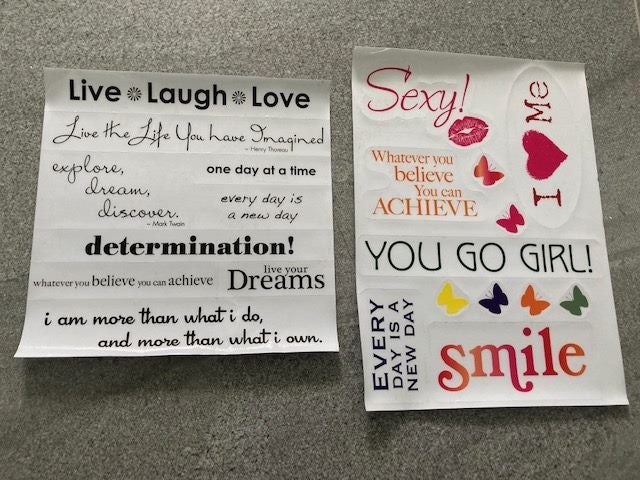 Live Laugh Love
Live the Life You have Imagined
~ Henry Thoreau
explore,
dream,
discover.
~ Mark Twain
one day at a time
every day is
a new day
determination!
whatever you believe you can achieve
live your
Dreams
i am more than what i do,
and more than what i own.
Sexy!
I ♥ Me
Whatever you
believe
You can
ACHIEVE
YOU GO GIRL!
EVERY
DAY IS A
NEW DAY
smile